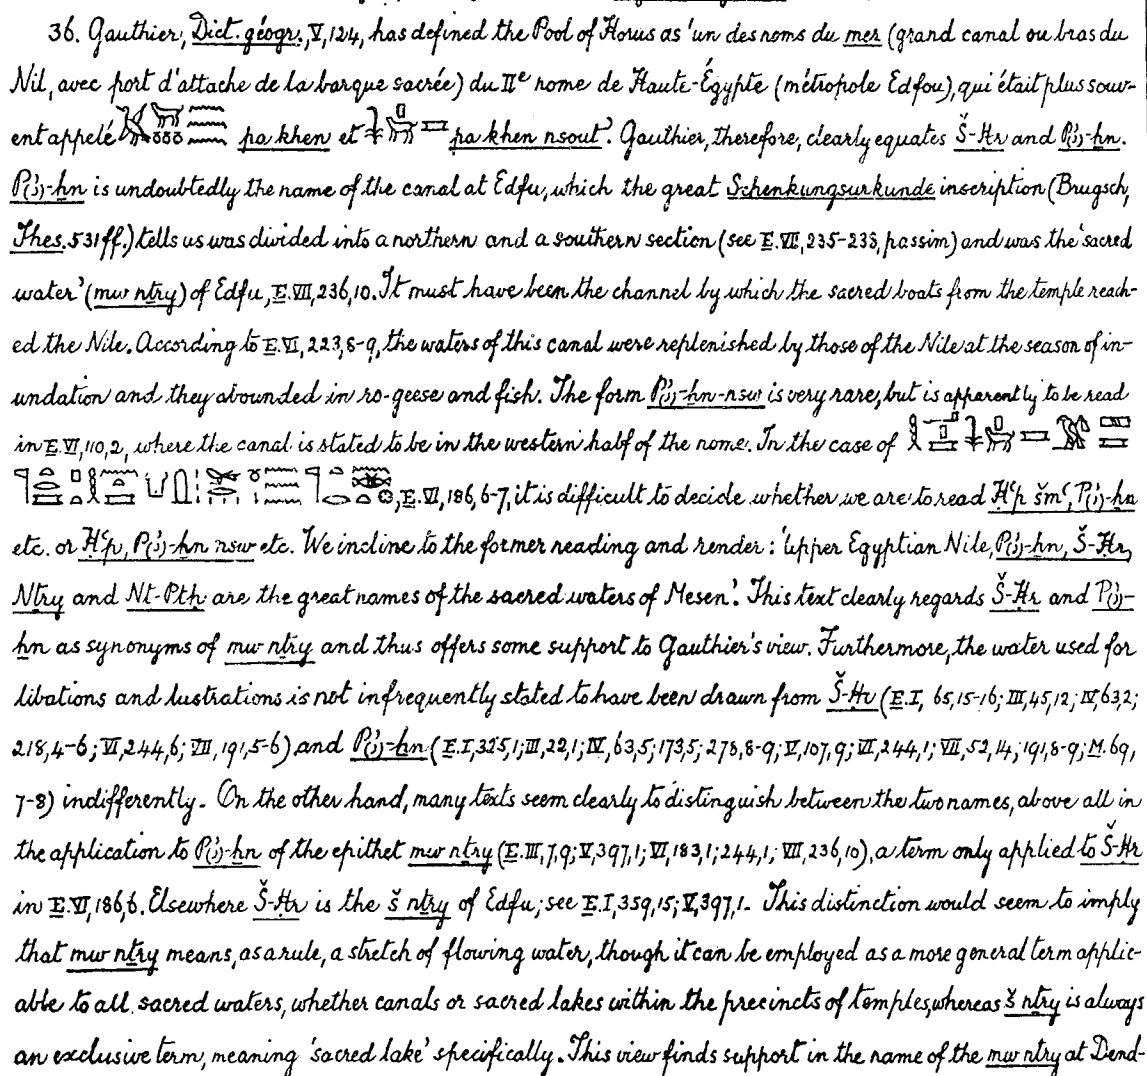 36. Gauthier, Dict. géogr., V, 124, has defined the Pool of Horus as 'un des noms du mer (grand canal ou bras du
Nil, avec port d'attache de la barque sacrée) du IIᵉ nome de Haute-Égypte (métropole Edfou), qui était plus souv-
ent appelé pa khen et pa khen nsout'. Gauthier, therefore, clearly equates Š-Ḥr and P(ꜣ)-ḫn.
P(ꜣ)-ḫn is undoubtedly the name of the canal at Edfu, which the great Schenkungsurkunde inscription (Brugsch,
Thes. 531 ff.) tells us was divided into a northern and a southern section (see E. VII, 235-238, passim) and was the 'sacred
water' (mw nṯry) of Edfu, E. VII, 236, 10. It must have been the channel by which the sacred boats from the temple reach-
ed the Nile. According to E. VI, 223, 8-9, the waters of this canal were replenished by those of the Nile at the season of in-
undation and they abounded in ro-geese and fish. The form P(ꜣ)-ḫn-nsw is very rare, but is apparently to be read
in E. VI, 110, 2, where the canal is stated to be in the western half of the nome. In the case of
, E. VI, 186, 6-7, it is difficult to decide whether we are to read Ḥꜥp šmꜥ, P(ꜣ)-ḫn
etc. or Ḥꜥp, P(ꜣ)-ḫn nsw etc. We incline to the former reading and render: 'Upper Egyptian Nile, P(ꜣ)-ḫn, Š-Ḥr,
Nṯry and Nt-Ptḥ are the great names of the sacred waters of Mesen'. This text clearly regards Š-Ḥr and P(ꜣ)-
ḫn as synonyms of mw nṯry and thus offers some support to Gauthier's view. Furthermore, the water used for
libations and lustrations is not infrequently stated to have been drawn from Š-Ḥr (E. I, 65, 15-16; III, 45, 12; IV, 63, 2;
218, 4-6; VI, 244, 6; VII, 191, 5-6) and P(ꜣ)-ḫn (E. I, 325, 1; III, 22, 1; IV, 63, 5; 173, 5; 278, 8-9; V, 107, 9; VI, 244, 1; VII, 52, 14; 191, 8-9; M. 69,
7-8) indifferently. On the other hand, many texts seem clearly to distinguish between the two names, above all in
the application to P(ꜣ)-ḫn of the epithet mw nṯry (E. III, 7, 9; V, 397, 1; VI, 183, 1; 244, 1; VII, 236, 10), a term only applied to Š-Ḥr
in E. VI, 186, 6. Elsewhere Š-Ḥr is the š nṯry of Edfu; see E. I, 359, 15; V, 397, 1. This distinction would seem to imply
that mw nṯry means, as a rule, a stretch of flowing water, though it can be employed as a more general term applic-
able to all sacred waters, whether canals or sacred lakes within the precincts of temples, whereas š nṯry is always
an exclusive term, meaning 'sacred lake' specifically. This view finds support in the name of the mw nṯry at Dend-